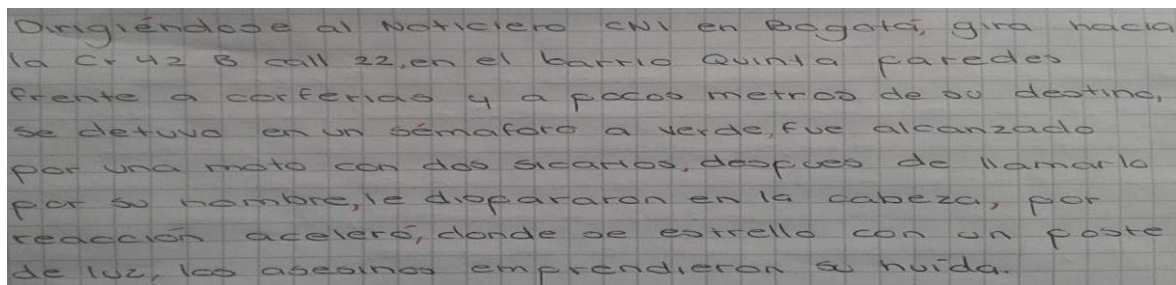 Dirigiéndose al Noticiero CNI en Bogotá, gira hacia
la Cr 42 B call 22, en el barrio Quinta Paredes
frente a corferias y a pocos metros de su destino,
se detuvo en un sémaforo a verde, fue alcanzado
por una moto con dos sicarios, despues de llamarlo
por su nombre, le dispararon en la cabeza, por
reacción aceleró, donde se estrello con un poste
de luz, los asesinos emprendieron su huída.